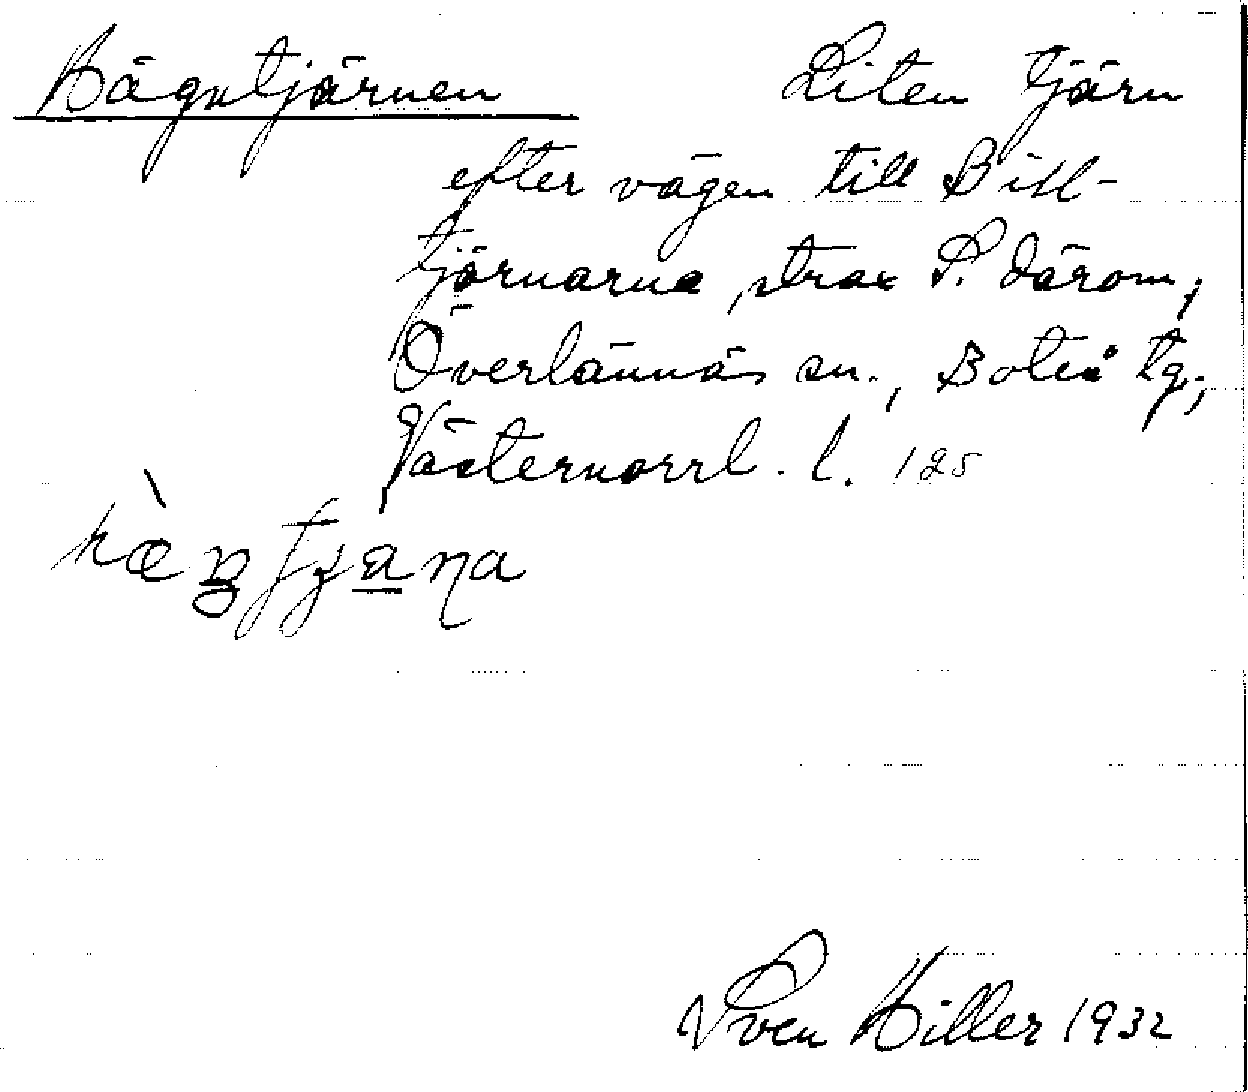 Hägntjärnen Liten tjärn
efter vägen till Bill-
tjärnarna, strax S. därom,
Överlännäs sn., Boteå tg.,
Västernorrl. l. 125
Sven Hiller 1932